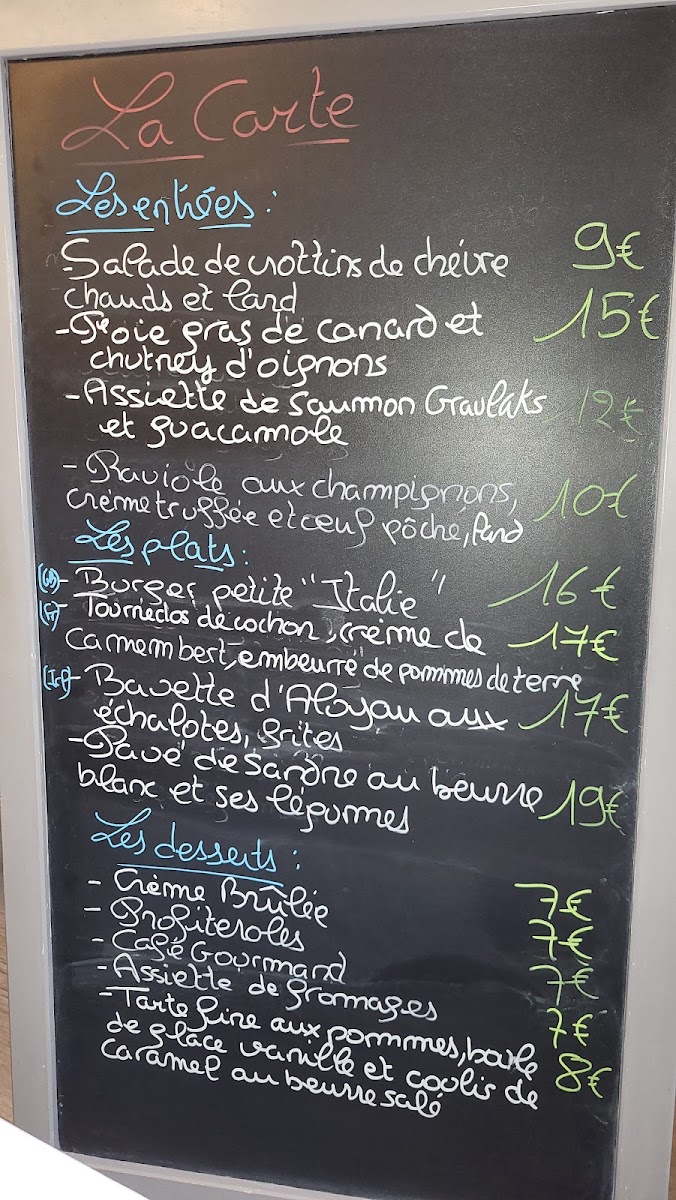 La Carte
Les entrées :
-Salade de crottins de chévre 9€
chauds et lard
-Foie gras de canard et 15€
chutney d'oignons
-Assiette de saumon Gravlaks 12€
et guacamole
-Raviole aux champignons, 10€
crème truffée et œuf pôché, lard
Les plats :
- Burger petite "Italie" 16€
(Fr)- Tournedos de cochon, crème de 17€
camembert, embeurré de pommes de terre
(Irl)- Bavette d'Aloyau aux 17€
échalotes, frites
-Pavé de Sandre au beurre 19€
blanc et ses légumes
Les desserts :
- Crème Brûlée 7€
- Profiteroles 7€
- Café Gourmand 7€
- Assiette de fromages 7€
-Tarte fine aux pommes, boule 8€
de glace vanille et coulis de
caramel au beurre salé